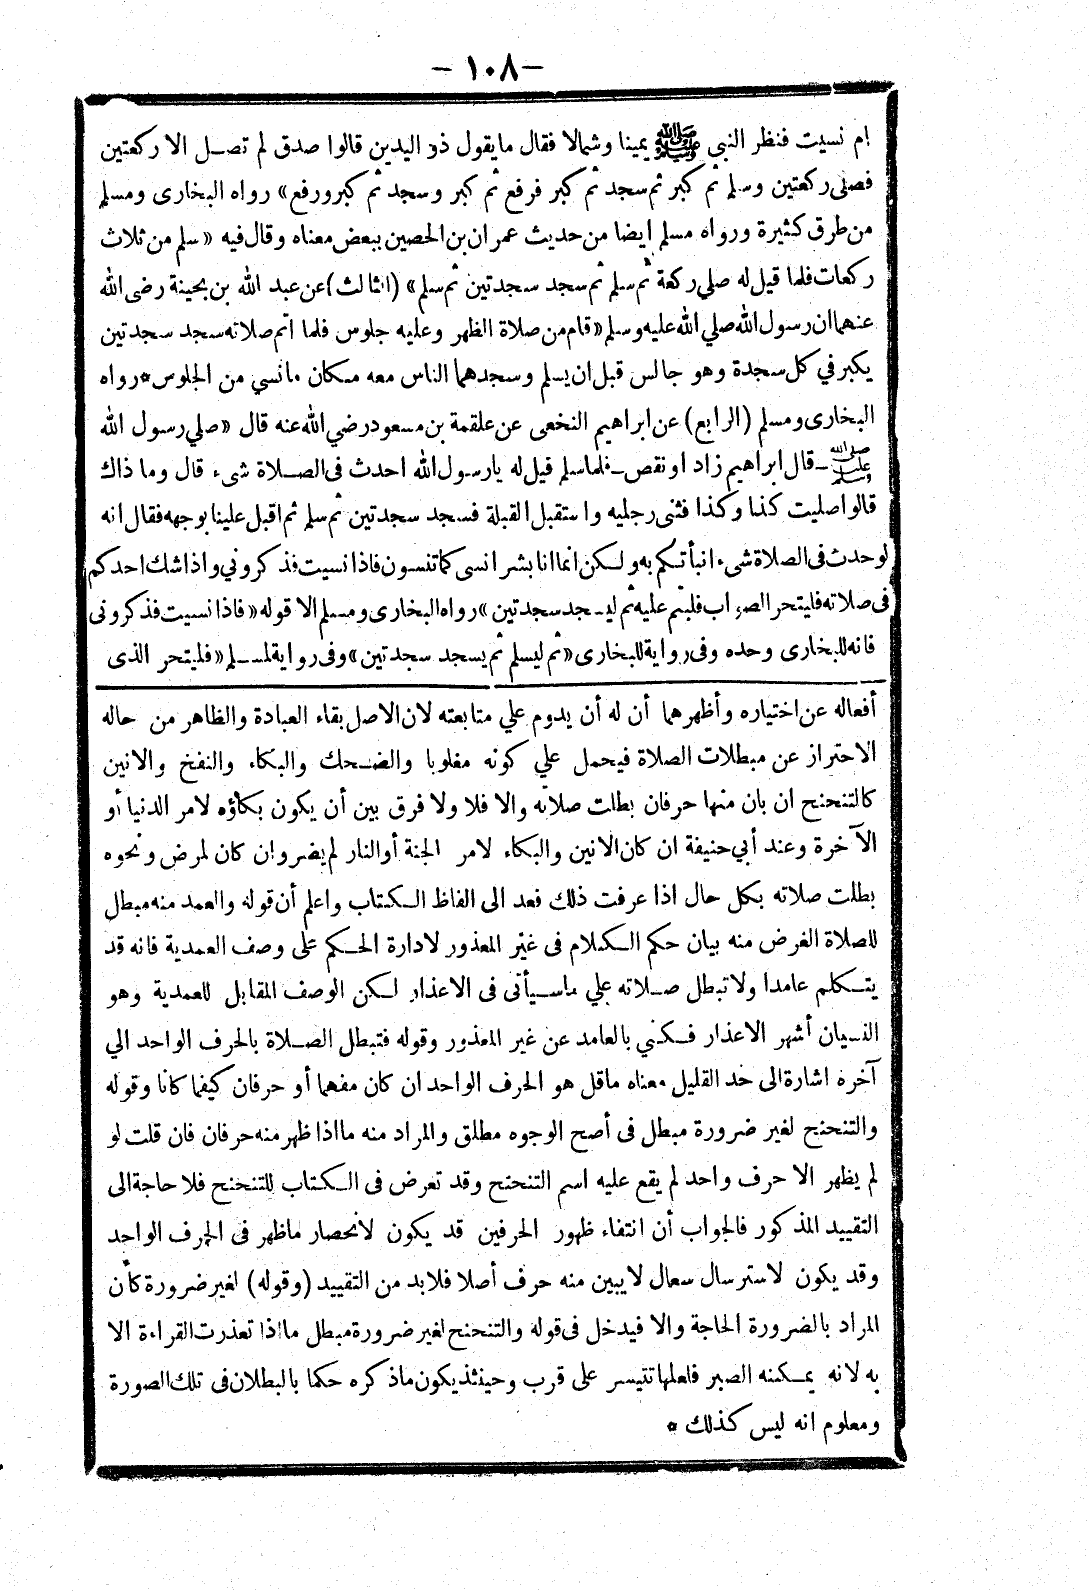 - ١٠٨ -
ام نسيت فنظر النبي ﷺ يمينا وشمالا فقال ما يقول ذو اليدين قالوا صدق لم تصل الا ركعتين
فصلى ركعتين وسلم ثم كبر ثم سجد ثم كبر فرفع ثم كبر وسجد ثم كبر ورفع » رواه البخارى ومسلم
من طرق كثيرة ورواه مسلم ايضا من حديث عمران بن الحصين ببعض معناه وقال فيه « سلم من ثلاث
ركعات فلما قيل له صلي ركعة ثم سلم ثم سجد سجدتين ثم سلم » (الثالث) عن عبد الله بن بحينة رضى الله
عنهما ان رسول الله صلي الله عليه وسلم « قام من صلاة الظهر وعليه جلوس فلما اتم صلاته سجد سجدتين
يكبر في كل سجدة وهو جالس قبل ان يسلم وسجدهما الناس معه مكان مانسي من الجلوس * رواه
البخارى ومسلم (الرابع) عن ابراهيم النخعى عن علقمة بن مسعود رضي الله عنه قال « صلي رسول الله
ﷺ - قال ابراهيم زاد او نقص - فلما سلم قيل له يا رسول الله احدث فى الصلاة شىء قال وما ذاك
قالوا صليت كذا وكذا فثنى رجليه واستقبل القبلة فسجد سجدتين ثم سلم ثم اقبل علينا بوجهه فقال انه
لو حدث فى الصلاة شىء انبأتكم به ولكن انما انا بشر انسى كما تنسون فاذا نسيت فذكروني واذا شك احدكم
فى صلاته فليتحر الصواب فليتم عليه ثم ليسجد سجدتين » رواه البخارى ومسلم الا قوله « فاذا نسيت فذكرونى
فانه للبخارى وحده وفى رواية للبخارى « ثم ليسلم ثم يسجد سجدتين » وفى رواية لمسلم « فليتحر الذى
أفعاله عن اختياره وأظهرهما أن له أن يدوم علي متابعته لان الاصل بقاء العبادة والظاهر من حاله
الاحتراز عن مبطلات الصلاة فيحمل علي كونه مغلوبا والضحك والبكاء والنفخ والانين
كالتنحنح ان بان منها حرفان بطلت صلاته والا فلا ولا فرق بين أن يكون بكاؤه لامر الدنيا أو
الآخرة وعند أبي حنيفة ان كان الانين والبكاء لامر الجنة أو النار لم يضر وان كان لمرض ونحوه
بطلت صلاته بكل حال اذا عرفت ذلك فعد الى الفاظ الكتاب واعلم أن قوله والعمد منه مبطل
للصلاة الغرض منه بيان حكم الكلام فى غير المعذور لادارة الحكم على وصف العمدية فانه قد
يتكلم عامدا ولا تبطل صلاته علي ماسيأتى فى الاعذار لكن الوصف المقابل للعمدية وهو
النسيان أشهر الاعذار فكنى بالعامد عن غير المعذور وقوله فتبطل الصلاة بالحرف الواحد الي
آخره اشارة الى حد القليل معناه ماقل هو الحرف الواحد ان كان مفهما أو حرفان كيفما كانا وقوله
والتنحنح لغير ضرورة مبطل فى أصح الوجوه مطلق والمراد منه ما اذا ظهر منه حرفان فان قلت لو
لم يظهر الا حرف واحد لم يقع عليه اسم التنحنح وقد تعرض فى الكتاب للتنحنح فلا حاجة الى
التقييد المذكور فالجواب أن انتفاء ظهور الحرفين قد يكون لانحصار ماظهر فى الحرف الواحد
وقد يكون لاسترسال سعال لا يبين منه حرف أصلا فلا بد من التقييد (وقوله) لغير ضرورة كأن
المراد بالضرورة الحاجة والا فيدخل فى قوله والتنحنح لغير ضرورة مبطل ما اذا تعذرت القراءة الا
به لانه يمكنه الصبر فلعلها تتيسر على قرب وحينئذ يكون ماذكره حكما بالبطلان فى تلك الصورة
ومعلوم انه ليس كذلك *